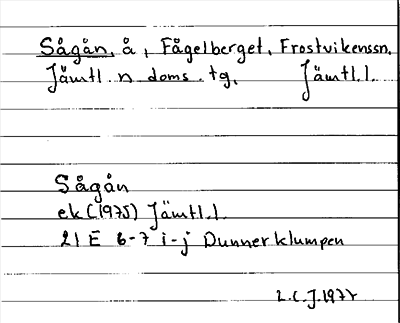 Sågån, å, Fågelberget, Frostvikenssn.
Jämtl. n. doms. tg. Jämtl.l.
Sågån
ek (1975) Jämtl.l.
21 E 6-7 i-j Dunnerklumpen
L.C.J. 1977